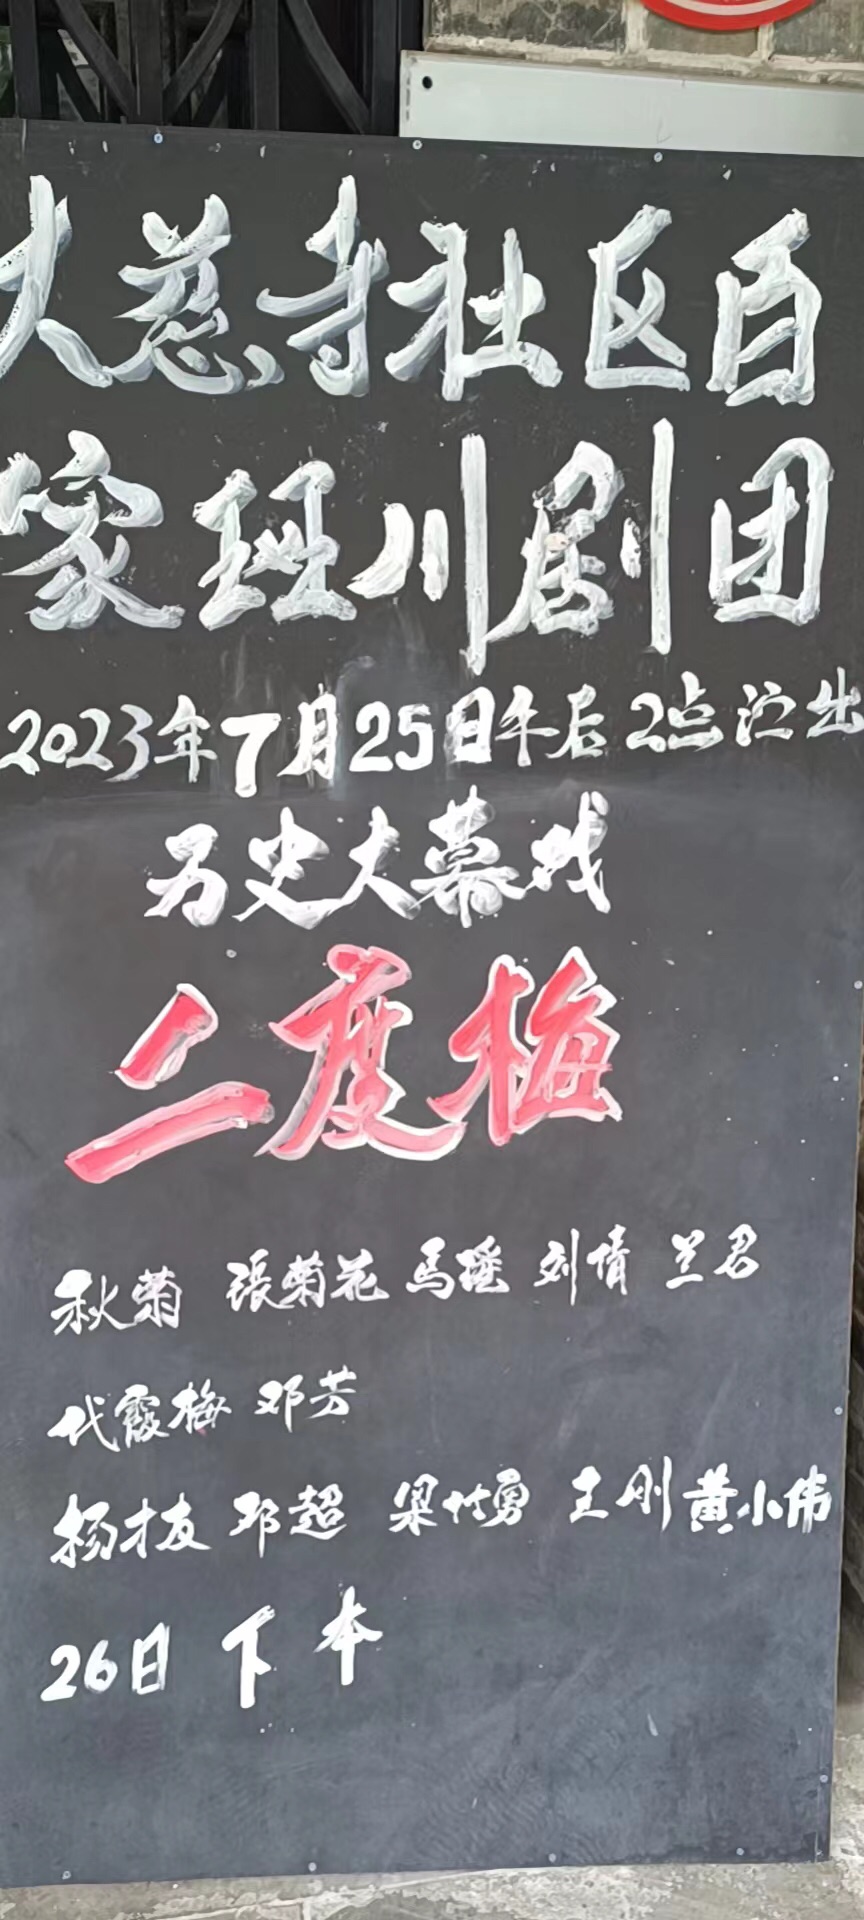 大慈寺社区百
家班川剧团
2023年7月25日午后2点演出
历史大幕戏
二度梅
秋菊 張菊花 馬瑶 刘倩 兰君
代霞梅 邓芳
杨才友 邓超 梁代勇 王刚 黄小伟
26日 下本